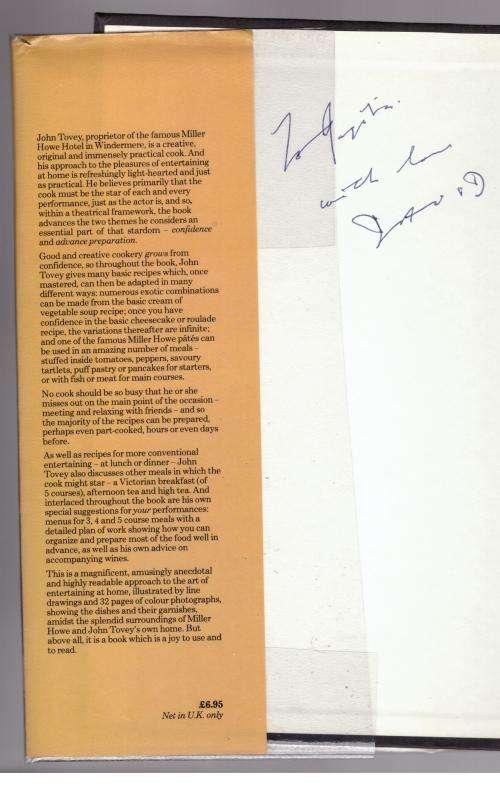 John Tovey, proprietor of the famous Miller
Howe Hotel in Windermere, is a creative,
original and immensely practical cook. And
his approach to the pleasures of entertaining
at home is refreshingly light-hearted and just
as practical. He believes primarily that the
cook must be the star of each and every
performance, just as the actor is, and so,
within a theatrical framework, the book
advances the two themes he considers an
essential part of that stardom – confidence
and advance preparation.
Good and creative cookery grows from
confidence, so throughout the book, John
Tovey gives many basic recipes which, once
mastered, can then be adapted in many
different ways: numerous exotic combinations
can be made from the basic cream of
vegetable soup recipe; once you have
confidence in the basic cheesecake or roulade
recipe, the variations thereafter are infinite;
and one of the famous Miller Howe pâtés can
be used in an amazing number of meals –
stuffed inside tomatoes, peppers, savoury
tartlets, puff pastry or pancakes for starters,
or with fish or meat for main courses.
No cook should be so busy that he or she
misses out on the main point of the occasion –
meeting and relaxing with friends – and so
the majority of the recipes can be prepared,
perhaps even part-cooked, hours or even days
before.
As well as recipes for more conventional
entertaining – at lunch or dinner – John
Tovey also discusses other meals in which the
cook might star – a Victorian breakfast (of
5 courses), afternoon tea and high tea. And
interlaced throughout the book are his own
special suggestions for your performances:
menus for 3, 4 and 5 course meals with a
detailed plan of work showing how you can
organize and prepare most of the food well in
advance, as well as his own advice on
accompanying wines.
This is a magnificent, amusingly anecdotal
and highly readable approach to the art of
entertaining at home, illustrated by line
drawings and 32 pages of colour photographs,
showing the dishes and their garnishes,
amidst the splendid surroundings of Miller
Howe and John Tovey's own home. But
above all, it is a book which is a joy to use and
to read.
£6.95
Net in U.K. only
To
with love